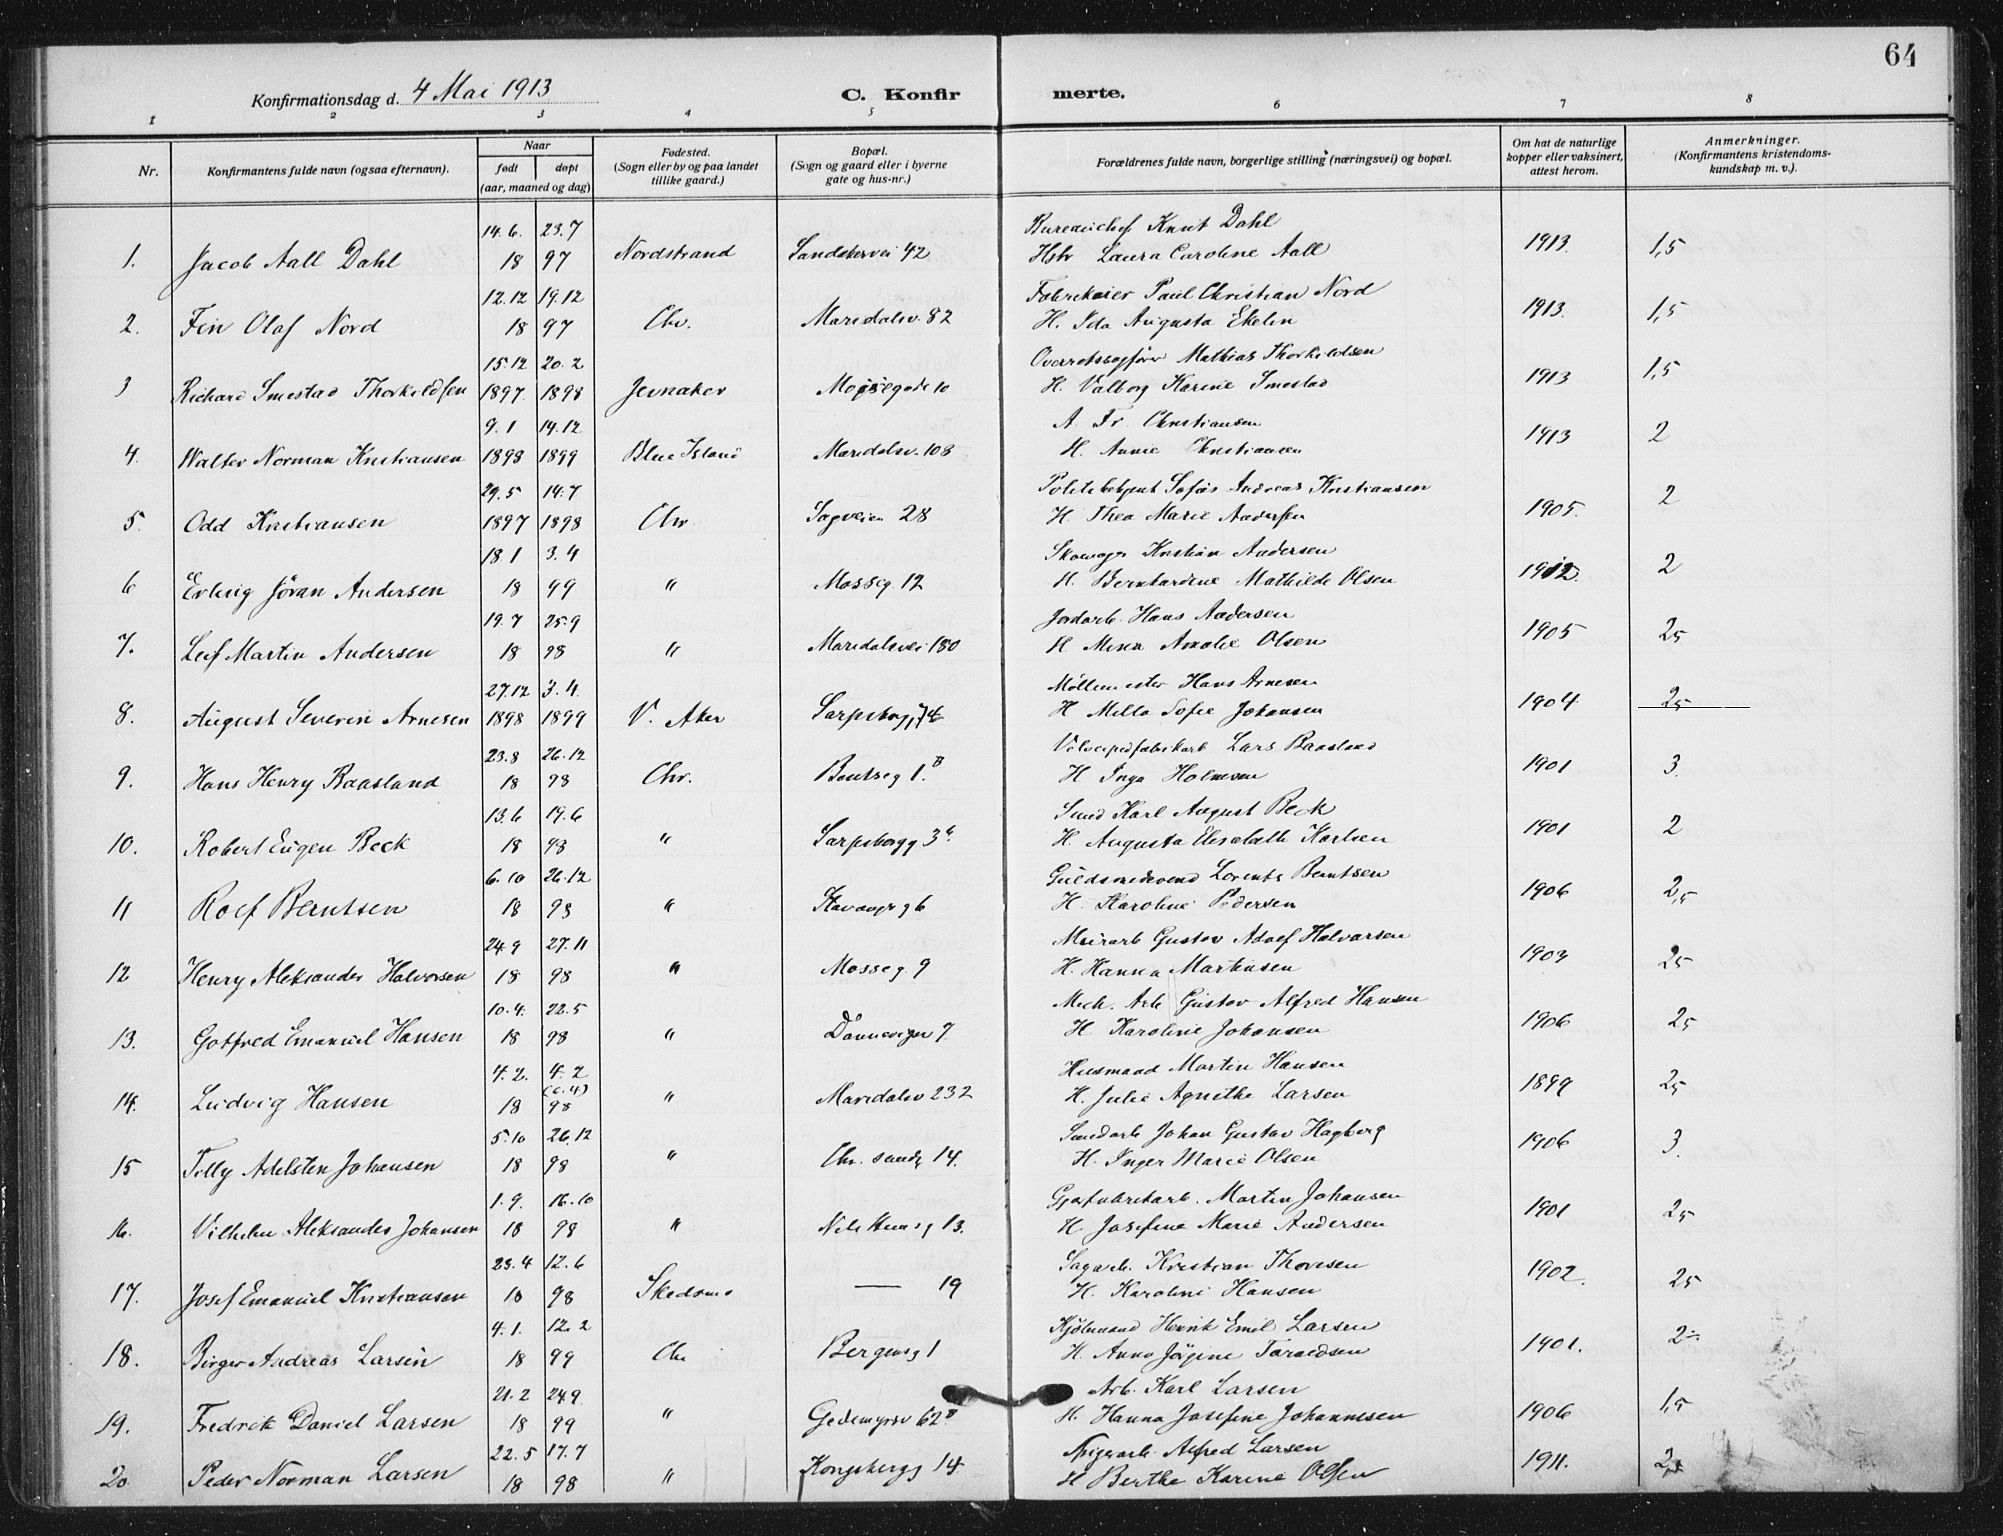 64
Konfirmationsdag d. 4 Mai 1913 C. Konfirmerte.
1 2 3 4 5 6 7 8
Nr. Konfirmantens fulde navn (ogsaa efternavn). Naar født døpt (aar, maaned og dag) Fødested. (Sogn eller by og paa landet tillike gaard.) Bopæl. (Sogn og gaard eller i byerne gate og hus-nr.) Forældrenes fulde navn, borgerlige stilling (næringsvei) og bopæl. Om hat de naturlige kopper eller vaksinert, attest herom. Anmerkninger. (Konfirmantens kristendoms-kundskap m. v.).
14.6. 23.7 Bureauchef Knut Dahl
1. Jacob Aall Dahl 18 97 Nordstrand Sandakervei 42 Hstr Laura Caroline Aall 1913 1,5
12.12 19.12 Fabrikeier Paul Christian Nord
2. Fin Olaf Nord 18 97 Chr. Maridalsv. 82 H. Ida Augusta Ekelin 1913 1,5
15.12 20.2 Overretssagfører Mathias Thorkildsen
3 Richard Smestad Thorkildsen 1897 1898 Jevnaker Mossegade 10 H. Valborg Karine Smestad 1913 1,5
9.1 14.12 A. Fr. Christiansen
4. Walter Norman Kristiansen 1898 1899 Blue Island Maridalsv. 108 H. Annie Christiansen 1913 2
29.5 14.7 Politibetjent Sofus Andreas Kristiansen
5. Odd Kristiansen 1897 1898 Chr. Sagveien 28 H. Thea Marie Andersen 1905. 2
18 1 3.4 Kristian Andersen
6 Erling Jøran Andersen 18 99 " Mosseg 12 H. Bernhardine Mathilde Olsen 1912. 2
19.7 25.9 Jordarb. Hans Andersen
7. Leif Martin Andersen 18 98 " Maridalsvei 180 H Mina Amalie Olsen 1905 25
27.12 3.4. Møllemester Hans Arnesen
8. August Severin Arnesen 1898 1899 V. Aker Sarpsborgg H Milla Sofie Johansen 1904 25
23.8 26.12 Velocipedfabrikarb Lars Baasland
9. Hans Henry Baasland 18 98 Chr. Bentseg 1.B H Inga Holmsen 1901 3.
13.6 19.6 Karl August Beck
10. Robert Eugen Beck 18 98 " Sarpsborgg 3 H. Augusta Elisabeth Karlsen 1901 2
6.10 26.12 Guldsmedsvend Lorents Berntsen
11 Rolf Berntsen 18 98 " Stavangerg 6 H. Karoline Pedersen 1906 2,5
24.9 27.11 Murarb Gustav Adolf Halvorsen
12 Henry Aleksander Halvorsen 18 98 " Mosseg 9 H. Hanna Martinsen 1903 25
10.4. 22.5 Mek. Arb Gustav Alfred Hansen
13. Gotfred Emanuel Hansen 18 98 " Dannevigsv 7. H. Karoline Johansen 1906 25
4.2. 4.2 Husmand Martin Hansen
14. Ludvig Hansen 18 98 " Maridalsv 232 H. Julie Agnethe Larsen 1899 25
5.10 26.12 Johan Gustav Hagberg
15 Telly Adelsten Johansen 18 98 " Chr. sandg 14. H. Inger Marie Olsen 1906 3.
1.9. 16.10 Martin Johansen
16. Vilhelm Aleksander Johansen 18 98 " Nils Huusg 13. H. Josefine Marie Andersen 1901 25
23.4 12.6 Sagarb. Kristian Thoresen
17. Josef Emanuel Kristiansen 18 98 Skedsmo — 19 H. Karoline Hansen 1902. 25
4.1. 12.2 Kjølmand Henrik Emil Larsen
18. Birger Andreas Larsen 18 99 Chr Bergensg 1 H. Anna Jørgine Taraldsen 1901. 2÷
21.2 24.9 Arb. Karl Larsen
19. Fredrik Daniel Larsen 18 99 " Gedemyrsv 62B H. Hanna Josefine Johannesen 1906 1,5
22.5 17.7 Spigerarb. Alfred Larsen
20 Peder Norman Larsen 18 98 " Kongsbergg 14 H Berthe Karine Olsen 1911. 2,5